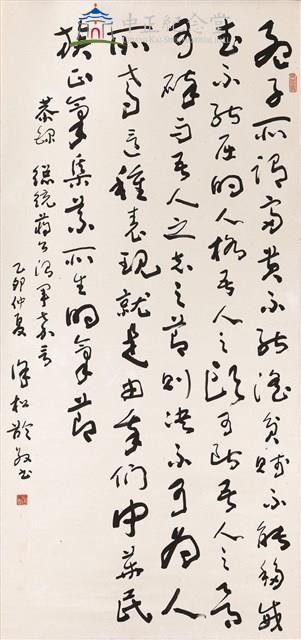 中正紀念堂
CHIANG KAI-SHEK MEMORIAL HALL
孟子所謂富貴不能淫貧賤不能移威
武不能屈的人格吾人之頭可斷吾人之骨
可碎而吾人之志之節則決不可為人
所奪這種表現就是由我們中華民
族正氣集義所生的氣節
恭錄 總統蔣公治軍嘉言
乙卯仲夏 徐松齡敬書